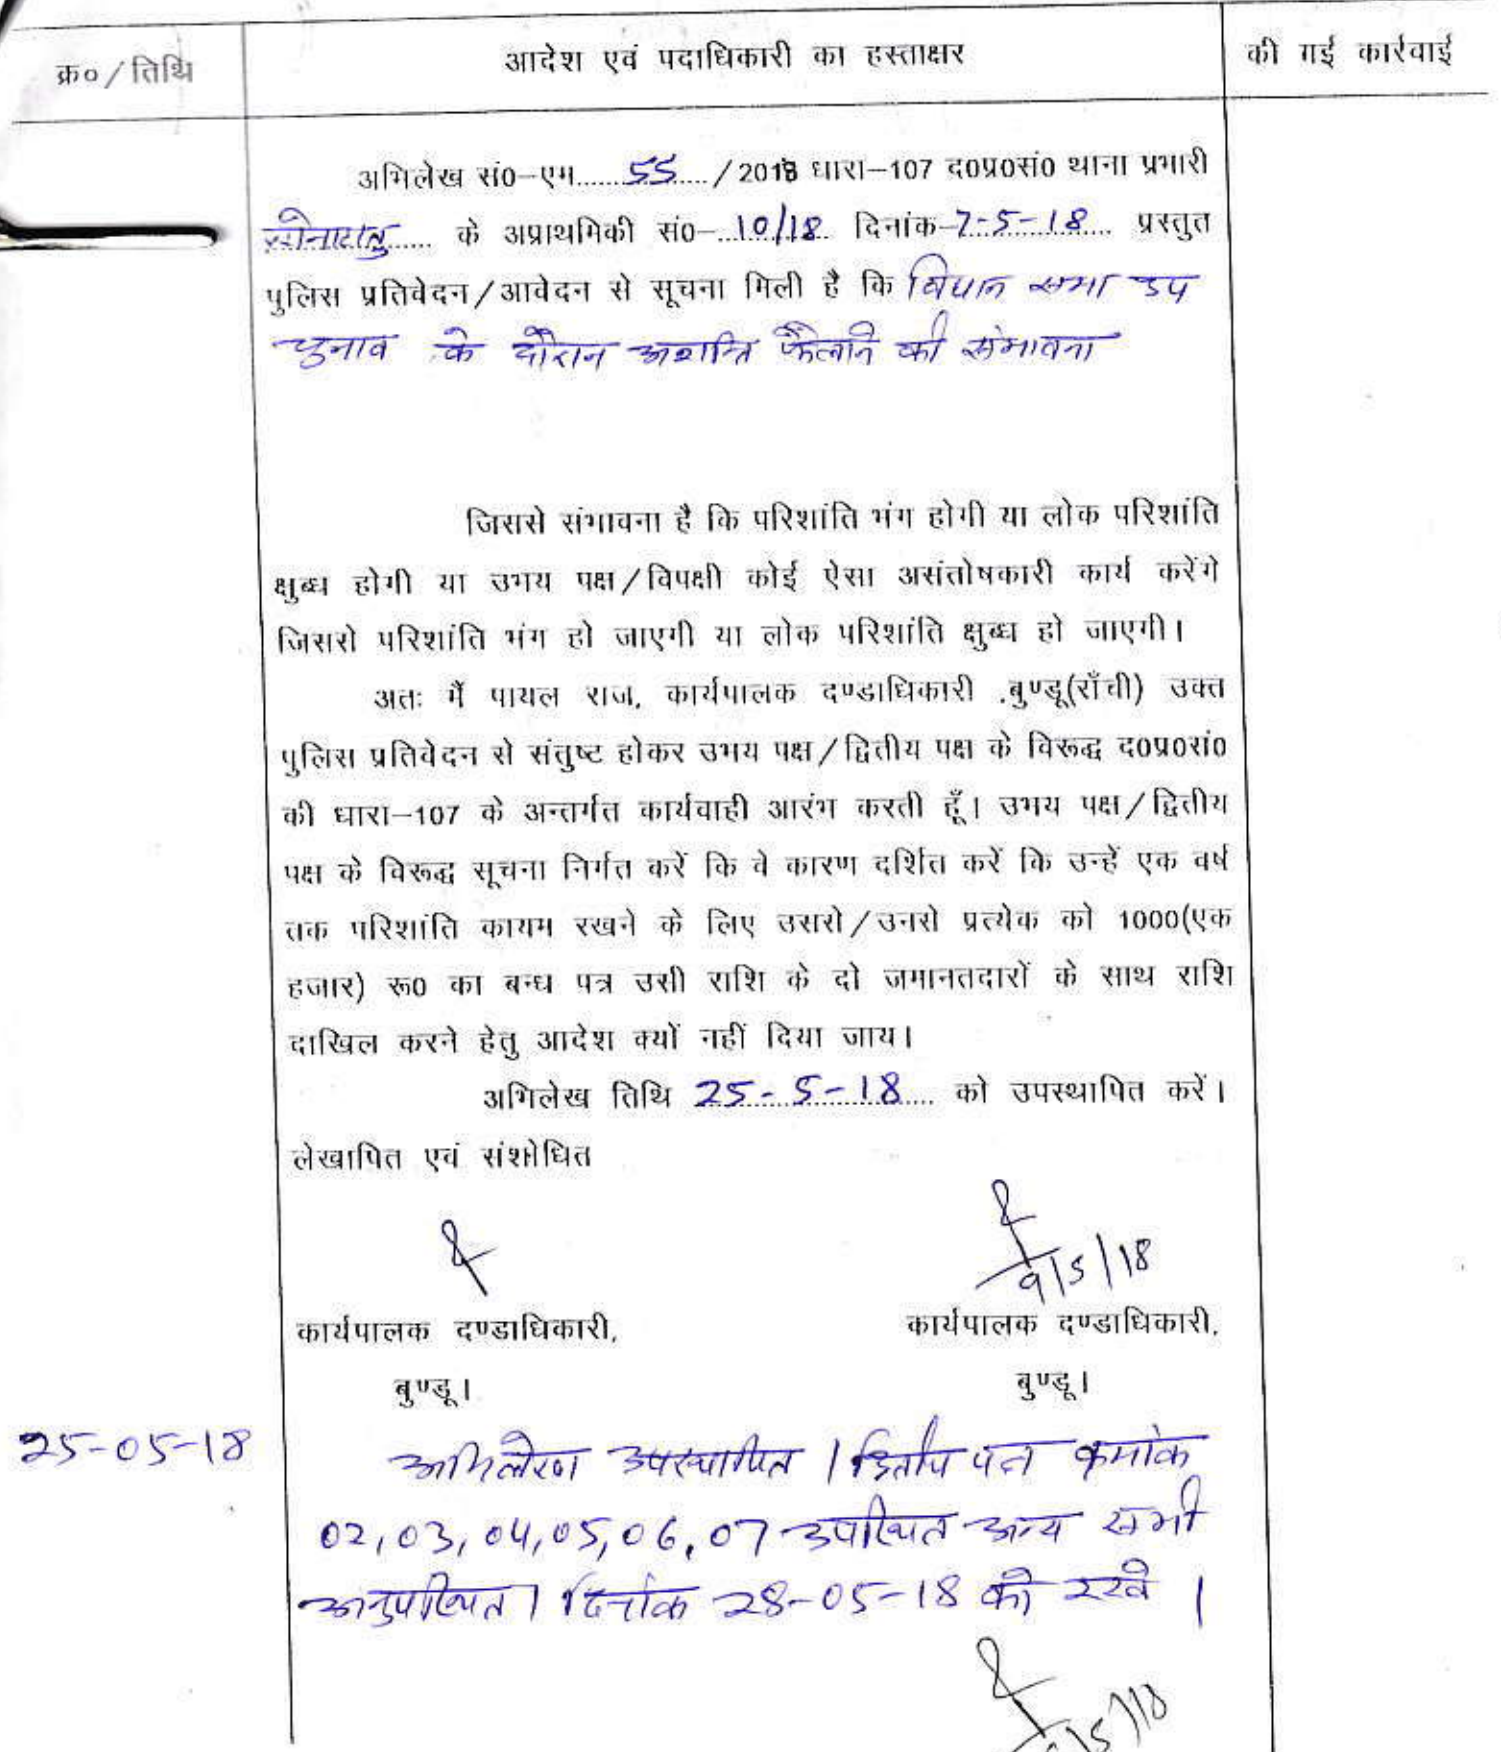 क्र०/तिथि आदेश एवं पदाधिकारी का हस्ताक्षर की गई कार्रवाई
अभिलेख सं०–एम.......55...../2018 धारा–107 द०प्र०सं० थाना प्रभारी
सोनाहातु...... के अप्राथमिकी सं०–..10/18.. दिनांक–7-5-18.... प्रस्तुत
पुलिस प्रतिवेदन/आवेदन से सूचना मिली है कि विधान सभा उप
चुनाव के दौरान अशान्ति फैलाने की संभावना
जिससे संभावना है कि परिशांति भंग होगी या लोक परिशांति
क्षुब्ध होगी या उभय पक्ष/विपक्षी कोई ऐसा असंतोषकारी कार्य करेंगे
जिससे परिशांति भंग हो जाएगी या लोक परिशांति क्षुब्ध हो जाएगी।
अतः मैं पायल राज, कार्यपालक दण्डाधिकारी .बुण्डू(राँची) उक्त
पुलिस प्रतिवेदन से संतुष्ट होकर उभय पक्ष/द्वितीय पक्ष के विरूद्ध द०प्र०सं०
की धारा–107 के अन्तर्गत कार्यवाही आरंभ करती हूँ। उभय पक्ष/द्वितीय
पक्ष के विरूद्ध सूचना निर्गत करें कि वे कारण दर्शित करें कि उन्हें एक वर्ष
तक परिशांति कायम रखने के लिए उससे/उनसे प्रत्येक को 1000(एक
हजार) रू० का बन्ध पत्र उसी राशि के दो जमानतदारों के साथ राशि
दाखिल करने हेतु आदेश क्यों नहीं दिया जाय।
अभिलेख तिथि 25-5-18.... को उपस्थापित करें।
लेखापित एवं संशोधित
9/5/18
कार्यपालक दण्डाधिकारी, कार्यपालक दण्डाधिकारी,
बुण्डू। बुण्डू।
25-05-18 अभिलेख उपस्थापित। द्वितीय पक्ष क्रमांक
02,03,04,05,06,07 उपस्थित अन्य सभी
अनुपस्थित। दिनांक 28-05-18 को रखें।
/5/18